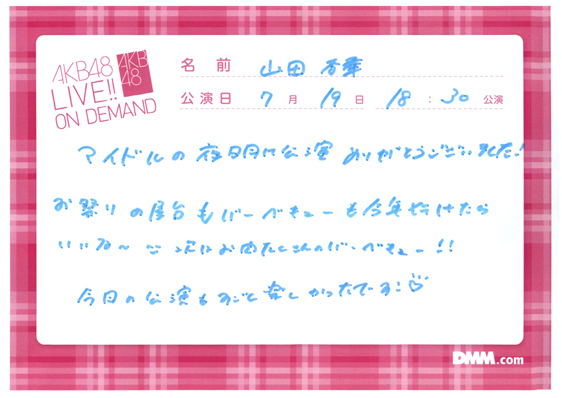 AKB48
LIVE!!
ON DEMAND
AKB
48
名 前 山田 杏華
公演日 7 月 19 日 18 : 30 公演
マイドルの 夜 公演 ありがとうございました!
お祭りの屋台もバーベキューも今年行けたら
いいな〜 次はお肉たくさんのバーベキュー!!
今日の公演もすごく楽しかったです!♡
DMM.com